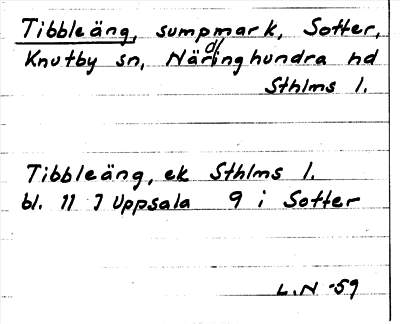 Tibbleäng, sumpmark, Sotter,
Knutby sn, Närdinghundra hd
Sthlms l.
Tibbleäng, ek Sthlms l.
bl. 11 J Uppsala 9 i Sotter
L.N -59